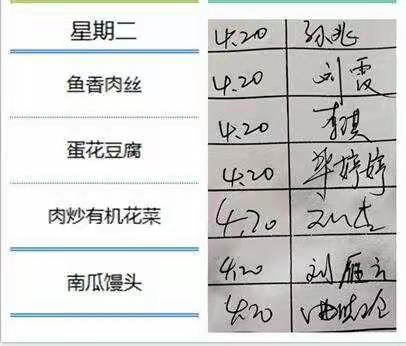 星期二
鱼香肉丝
蛋花豆腐
肉炒有机花菜
南瓜馒头
4.20 孙兆
4.20 刘霞
4.20 李琪
4.20 毕婷婷
4.20
4.20 刘雁云
4.20